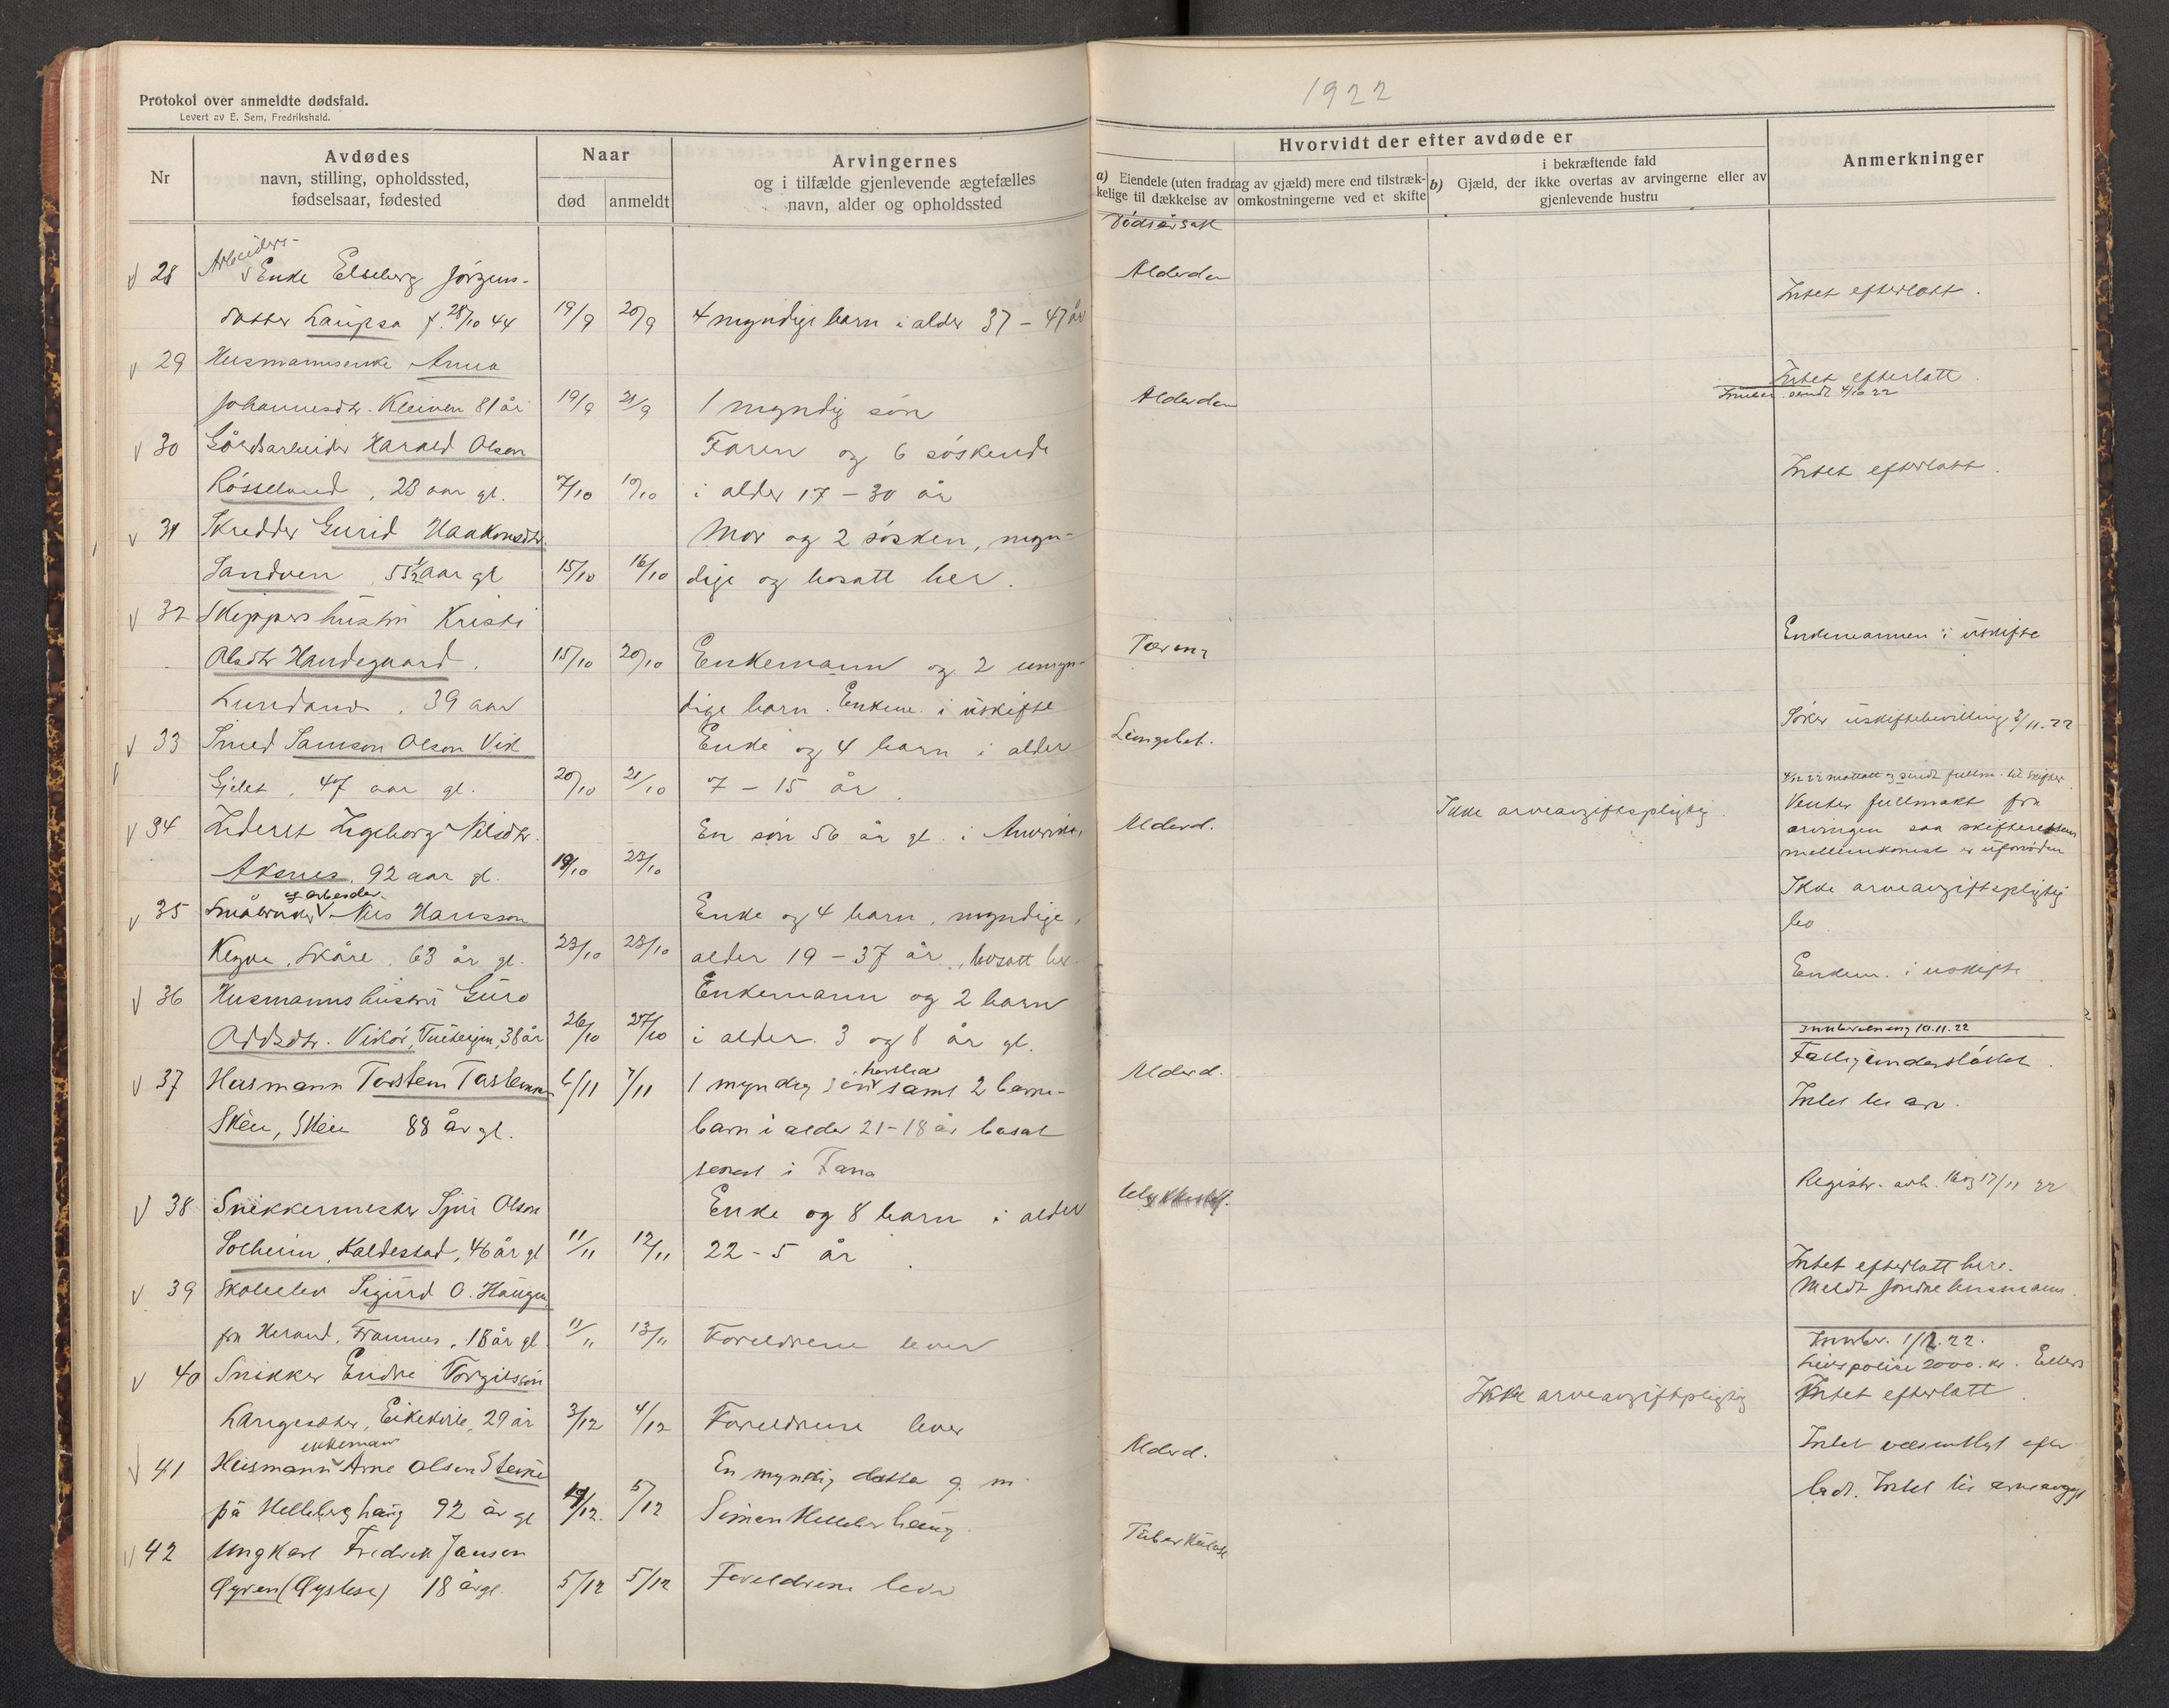 Protokol over anmeldte dødsfald.
Levert av E. Sem, Fredrikshald.
Nr
Avdødes
navn, stilling, opholdssted,
fødselsaar, fødested
Naar
død
anmeldt
Arvingernes
og i tilfælde gjenlevende ægtefælles
navn, alder og opholdssted
Arbeiders-
28 Enke Elseberg Jørgens-
datter Laupsa f. 28/10 44 19/9 20/9 4 myndige barn i alder 37 - 47 år
29 Husmannsenke Anna
Johannesdtr. Kleiven 81 år 19/9 21/9 1 myndig søn
30 Gårdsarbeider Harald Olson Faren og 6 søskende
Røsseland, 23 aar gl. 7/10 10/10 i alder 17 - 30 år
31 Skredder Gurid Haakonsdtr. Mor og 2 søsken, myn-
Sandven 55½ aar gl 15/10 16/10 dige og bosatt her.
32 Skippershustru Kristi
Olsdtr Handegaard. 15/10 20/10 Enkemann og 2 umyn-
Lundanes. 39 aar dige barn. Enkem. i uskifte
33 Smed Samson Olson Vik Enke og 4 barn i alder
47 aar gl. 20/10 21/10 7 - 15 år.
34 Ingeborg Nilsdtr. En søn 56 år gl. i Amerika
Aksnes, 92 aar gl. 19/10 23/10
og arbeider
35 Småbruker Nils Hansson Enke og 4 barn, myndige,
Skåre, 63 år gl. 23/10 23/10 alder 19 - 37 år, bosatt her
36 Husmannshustru Guro Enkemann og 2 barn
Oddsdtr. Vikør, 38 år 26/10 27/10 i alder 3 og 8 år gl.
37 Husmann Torstein Torsteinson 6/11 7/11 1 myndig søn samt 2 barne-
Skeie, Skeie 88 år gl. barn i alder 21-18 år bosat
senest i Fana
38 Snikkermester Sjur Olson Enke og 8 barn i alder
Solheim, Kaldestad, 46 år gl 11/11 12/11 22 - 5 år.
39 Skoleelev Sigurd O. Haugen
fra Herand, Framnes, 18 år gl 11/11 13/11 Foreldrene lever
40 Snikker Endre Torgilsson
Langesæter, Eikekvile, 29 år 3/12 4/12 Foreldrene lever
enkeman
41 Husmann Arne Olsen Steine En myndig datter g. m.
på Helleberghaug 92 år gl 4/12. 5/12 Simon Helleberhaug.
42 Ungkarl Fredrik Jansen
Øyren (Øystese) 18 år gl. 5/12 5/12 Foreldrene lever
1922
Hvorvidt der efter avdøde er
a) Eiendele (uten fradrag av gjæld) mere end tilstræk-
kelige til dækkelse av omkostningerne ved et skifte
i bekræftende fald
b) Gjæld, der ikke overtas av arvingerne eller av
gjenlevende hustru
Anmerkninger
Dødsårsak
Alderdom
Intet efterlatt.
Intet efterlatt.
Alderdom
Innber. sendt 4/10 22
Intet efterlatt.
Enkemannen i uskifte
Tæring
Søker uskiftebevilling 2/11. 22
Lungebet.
mottatt og sendt fullm. til skifter.
Ikke arveavgiftspligtig. Venter fullmakt fra
Alderd. arvingen saa skifterettens
mellemkomst er ufornøden
Ikke arveavgiftspligtig
bo.
Enkem. i uskifte
Innberetning 10.11.22
Fattigunderstøttet.
Alderd.
Intet til arv.
Registr. avh. 16 og 17/11 22
Ulykkestilf.
Intet efterlatt here.
Meldt Jondal lensmann.
Innber. 1/12.22.
Livspolise 2000. kr. Ellers
Ikke arveavgiftpligtig Intet efterlatt.
Alderd. Intet vesentligt efter
ladt. Intet til arveavgift
Tuberkulose